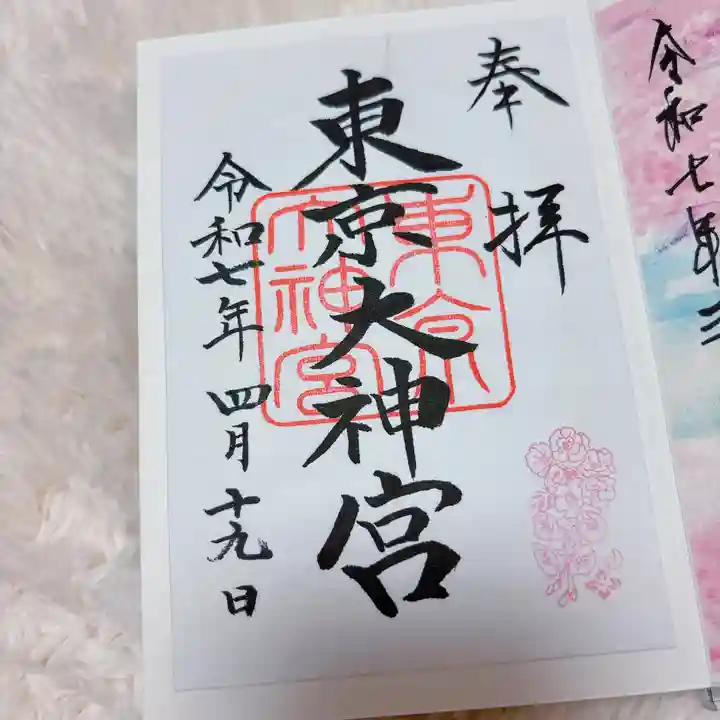 令和七年三
奉拝
東京大神宮
東京大神宮
令和七年四月十九日